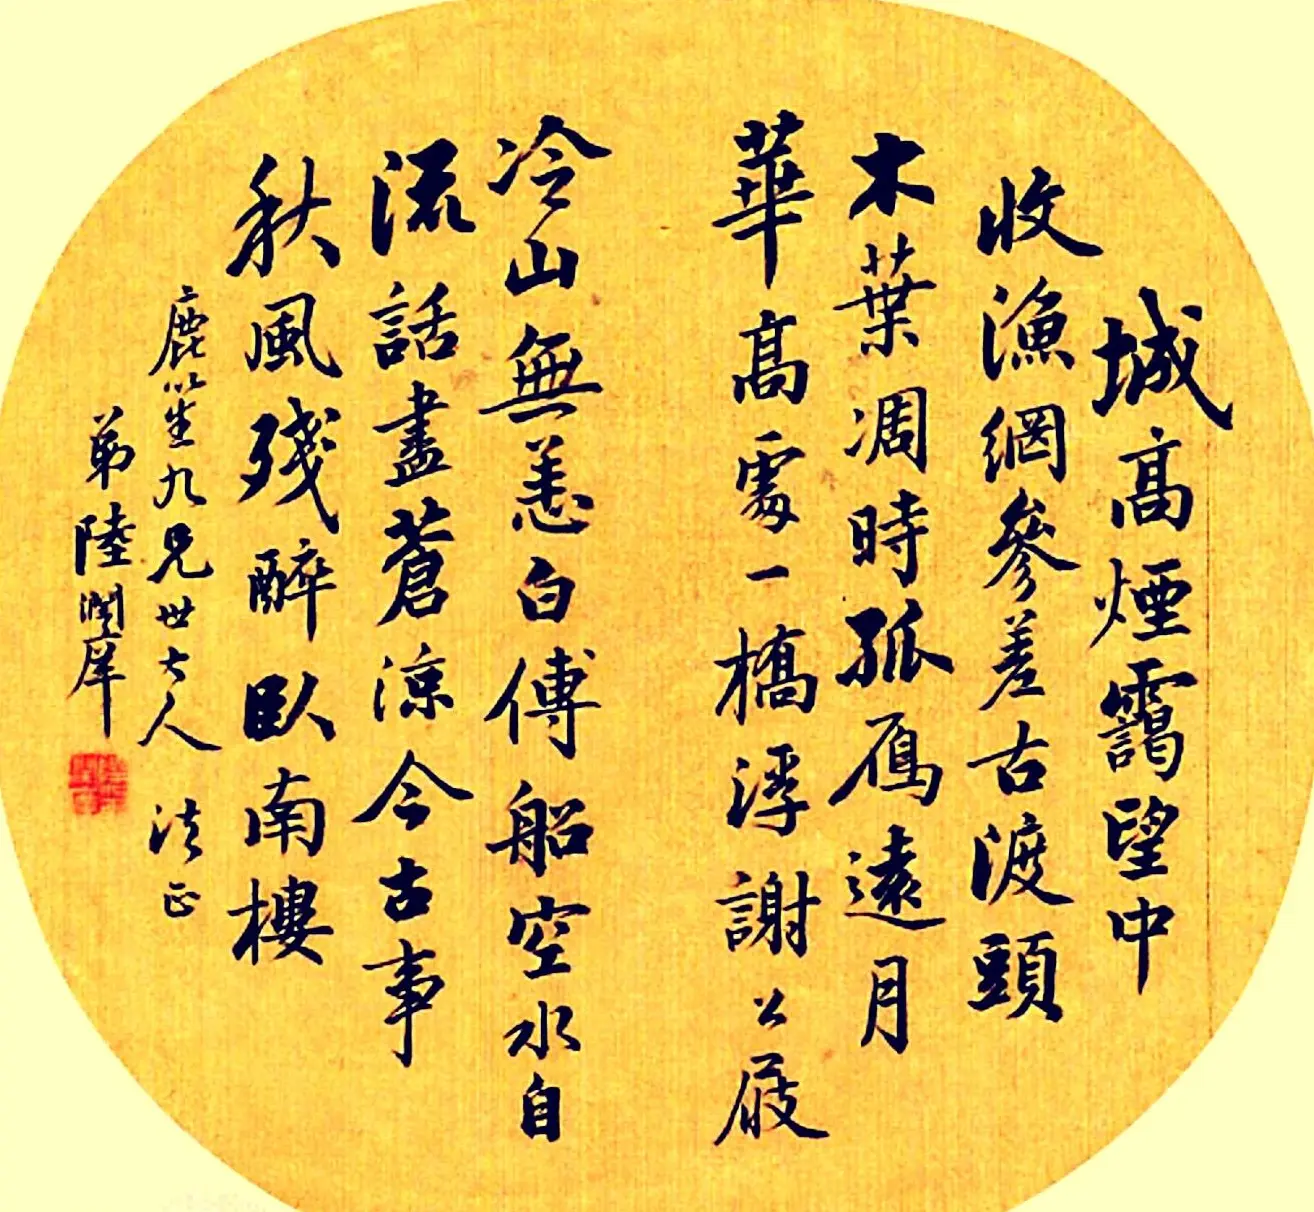 城高煙靄望中
收漁網參差古渡頭
木葉凋時孤鴈遠月
華高處一橋浮謝公屐
冷山無恙白傅船空水自
流話盡蒼涼今古事
秋風殘醉臥南樓
鹿笙九兄世大人 法正
弟陸潤庠